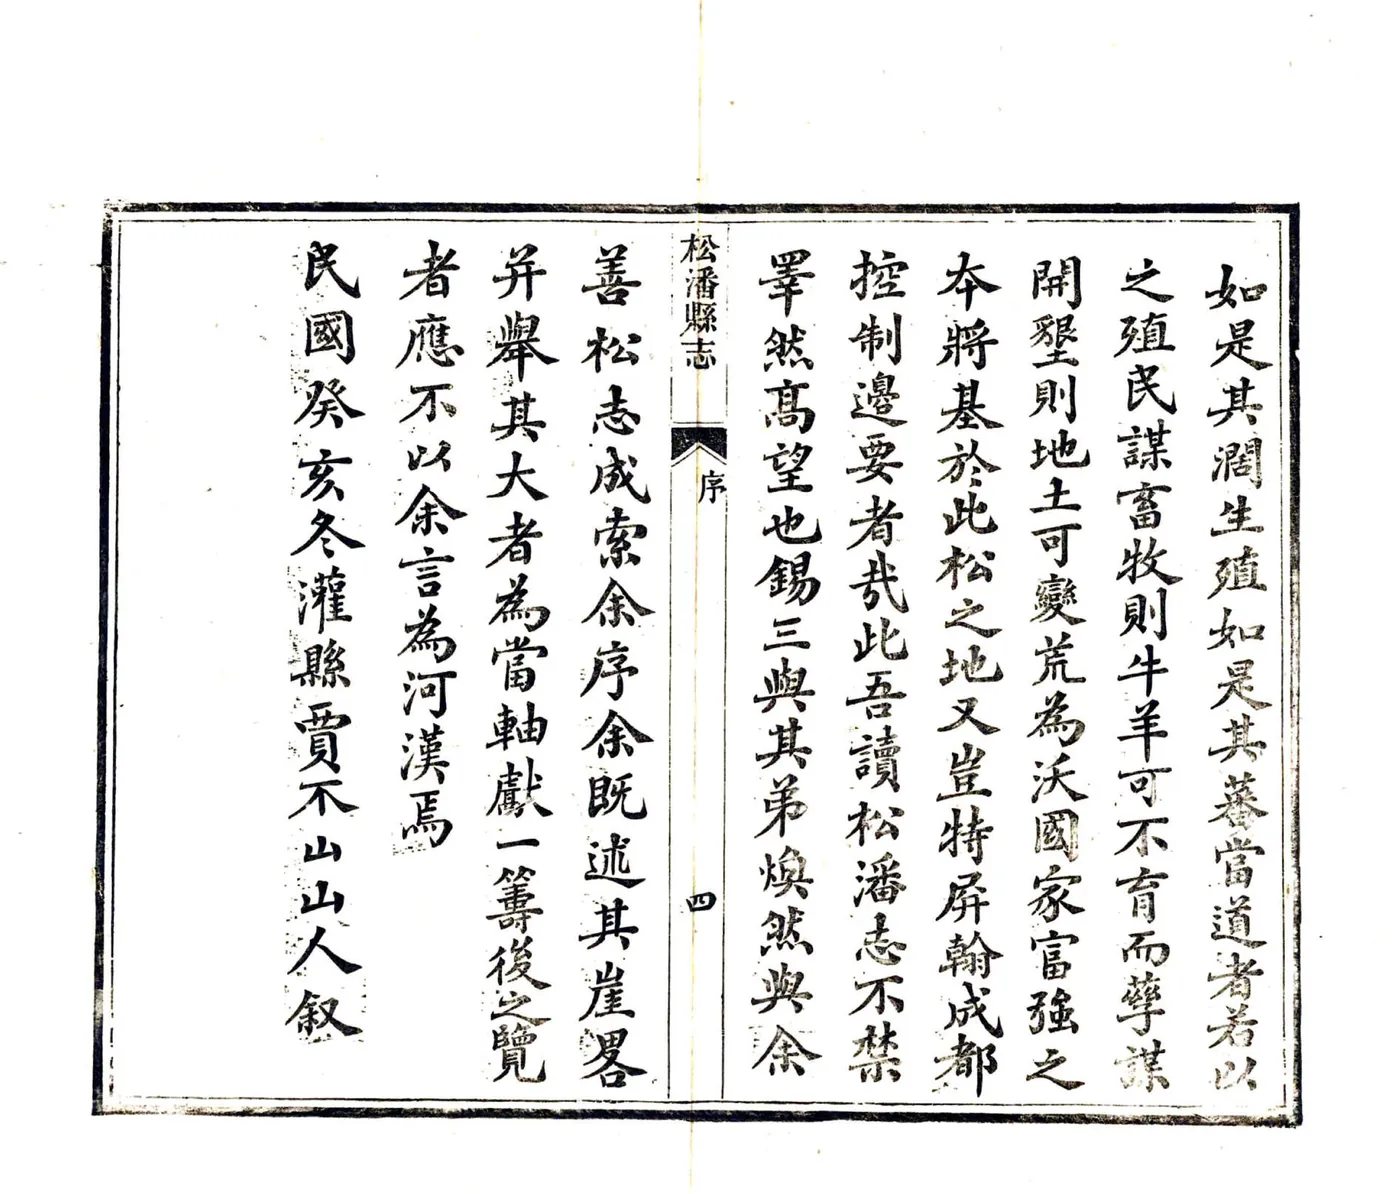 如是其濶生殖如是其蕃當道者若以
之殖民謀畜牧則牛羊可不育而孳謀
開墾則地土可變荒為沃國家富強之
本將基於此松之地又豈特屏翰成都
控制邊要者㢤此吾讀松潘志不禁
睪然髙望也錫三與其弟煥然與余
松潘縣志
序
四
善松志成索余序余既述其崖畧
并舉其大者為當軸獻一籌後之覽
者應不以余言為河漢焉
民國癸亥冬灌縣賈不山山人叙